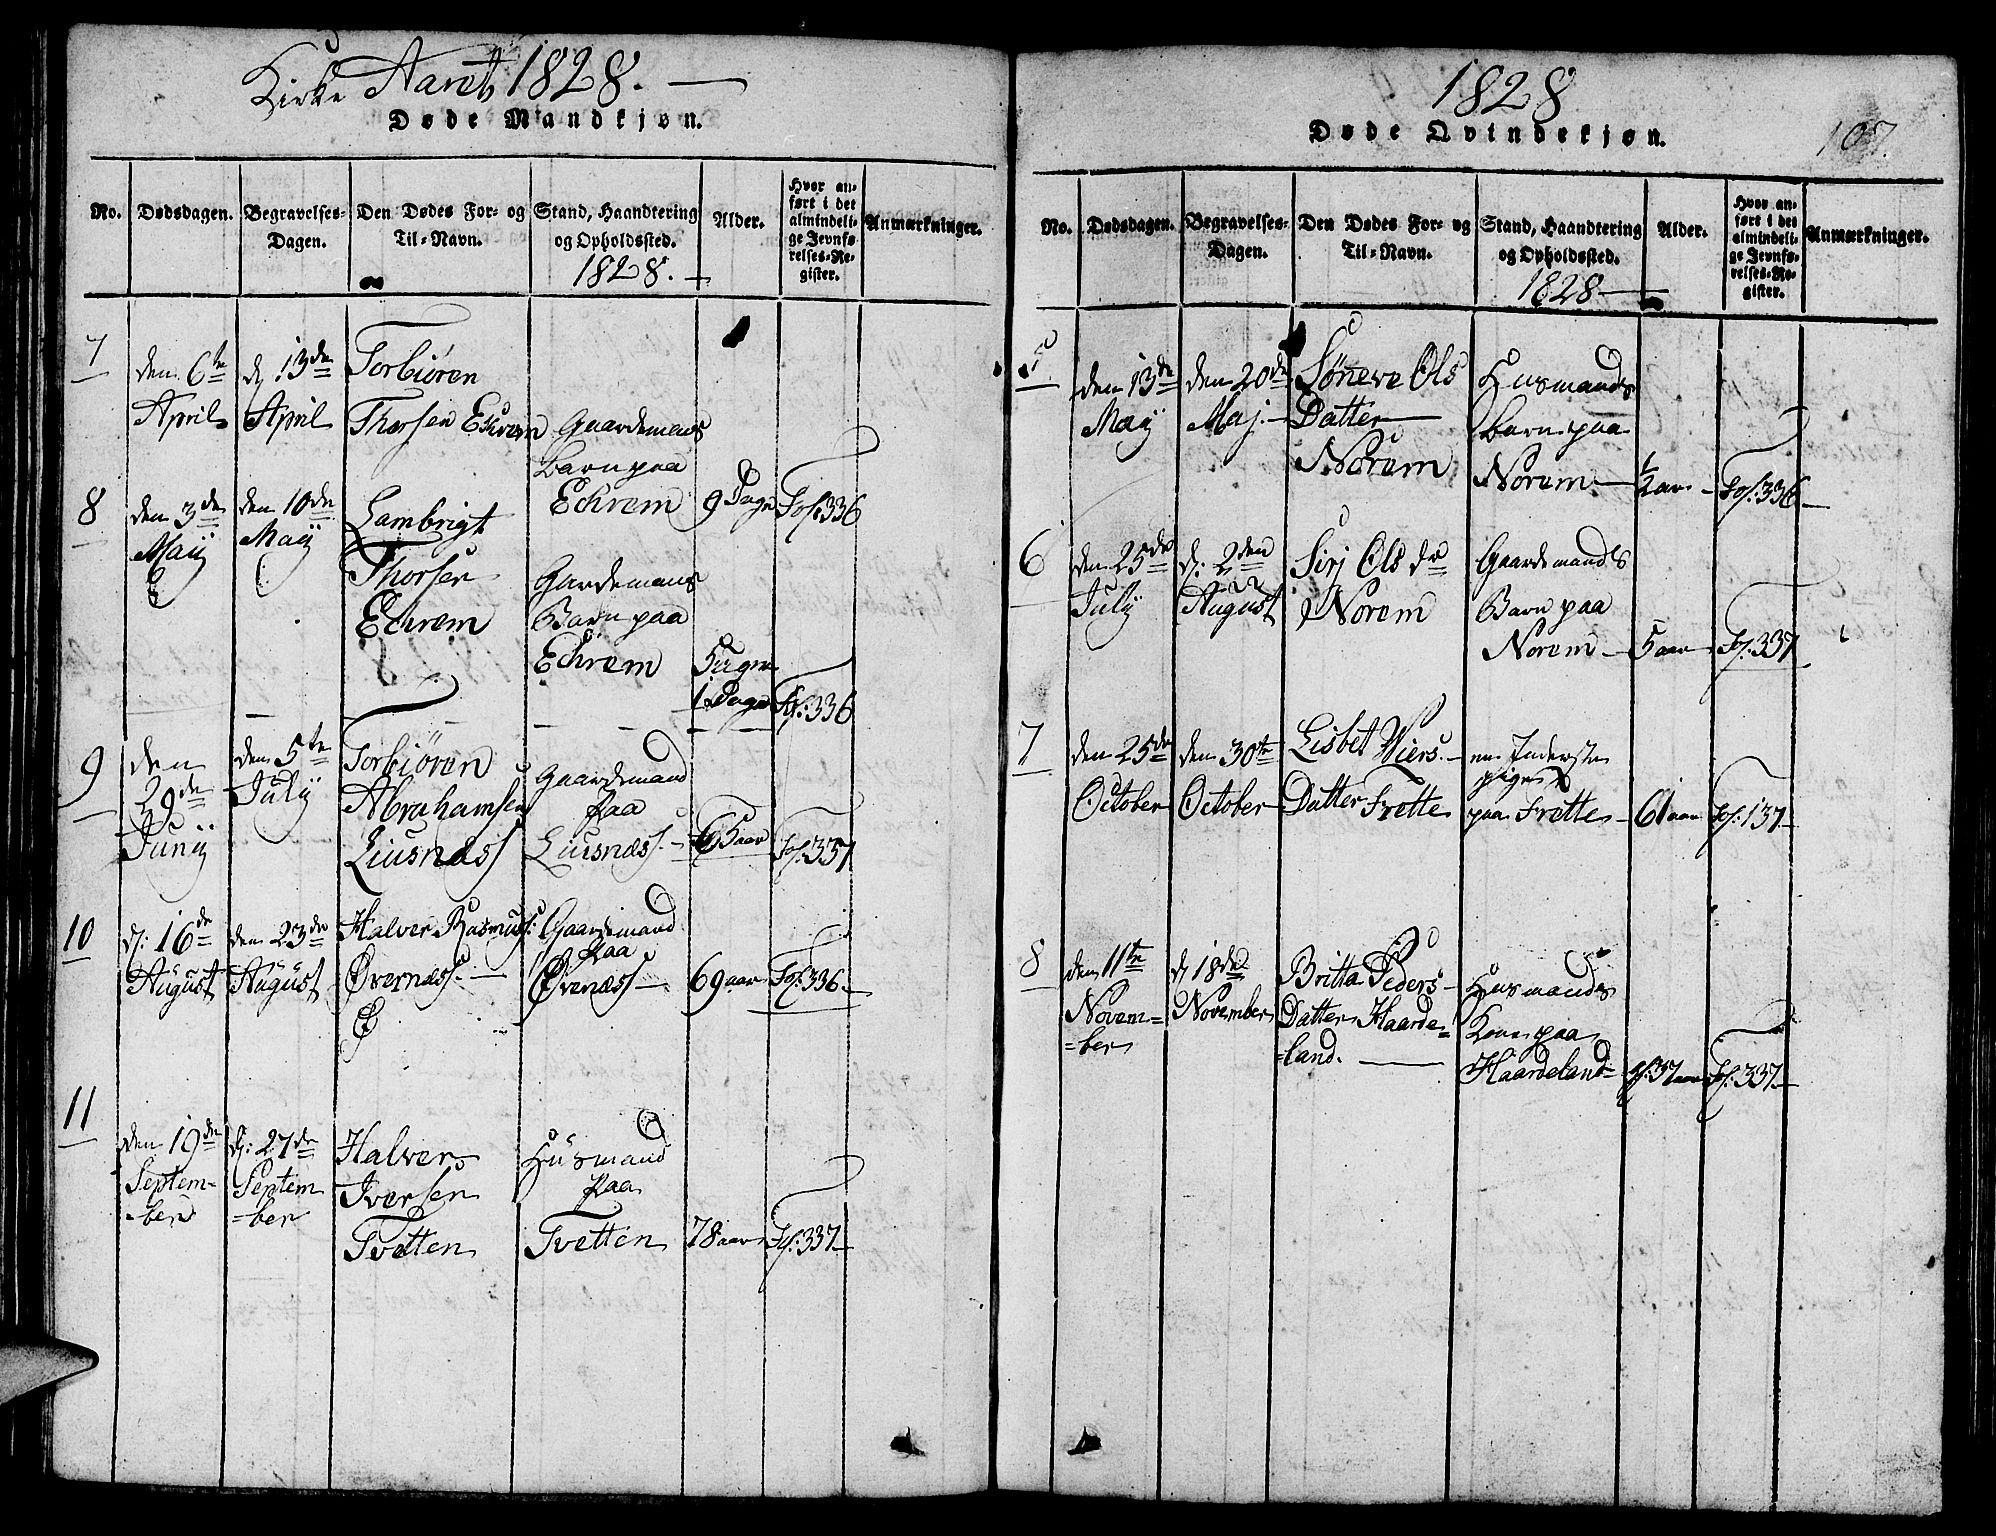 Kirke Aaret 1828.
Døde Mandkjøn.
No.
Dødsdagen.
Begravelses-
Dagen.
Den Dødes For- og
Til-Navn.
Stand, Haandtering
og Opholdssted.
1828.
Alder.
Hvor an-
ført i det
almindeli-
ge Jevnfø-
relses-Re-
gister.
Anmærkninger.
7
den 6te
April
d. 13de
April
Torbiøren
Thorsen Echrem
Gaardemans
barn paa
Echrem
9 Dage
Fol. 336
8
den 3de
Maij
den 10de
Maij
Lambrigt
Thorsen
Echrem
Gardemans
Barn paa
Echrem
1 Dage
Fol. 336
9
den
29de
Junij
den 5te
Julij
Torbiøren
Abrahamsen
Liusnæss
Gaardemand
paa
Liusnæss.
65 aar
Fol. 337
10
d: 16de
August
den 23de
August
Halver Rasmuss:
Øvernæss.
Gaardemand
paa
Øvenæss
69 aar
Fol. 336
11
den 19de
Septem-
ber
d: 27de
Septem
=ber
Halver
Iversen
Tvetten
Husmand
paa
Tvetten
78 aar
Fol. 337
1828
Døde Qvindekjøn.
107.
No.
Dødsdagen.
Begravelses-
Dagen.
Den Dødes For- og
Til-Navn.
Stand, Haandtering
og Opholdssted.
1828
Alder.
Hvor an-
ført i det
almindeli-
ge Jevnfø-
relses-Re-
gister.
Anmærkninger.
5
den 13de
Maij
den 20de
Maj.
Søneve Ols
Datter
Norem
Husmands
barn paa
Norem
1/2 aar
Fol. 336
6
den 25de
July
d: 2den
August
Sirj Ols dr
Norem
Gaardemands
Barn paa
Norem
5 aar
Fol. 337
7
den 25de
October
den 30te
October
Lisbet Wiers-
Datter Frette
en Inderste
pige
paa Frette
61 aar
Fol: 137
8
den 11te
Novem=
=ber
d 18de
November
Britta Peders-
Datter Haarde=
=land.
Husmands
Kone paa
Haardeland
37 aar
Fol. 337